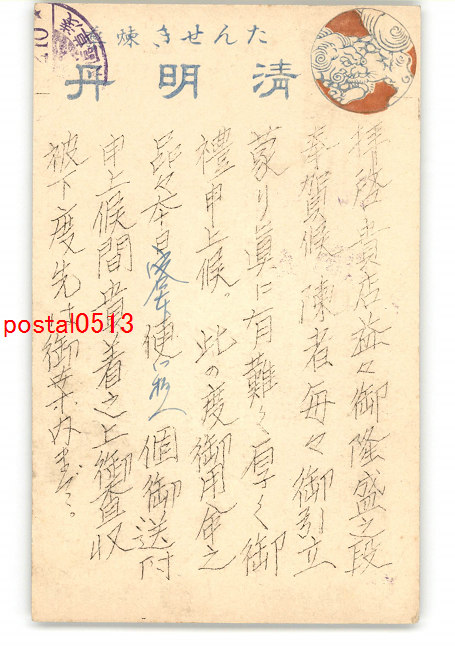 たんせき煉
清明丹
拝啓貴店益々御隆盛之段
奉賀候陳者毎々御引立
蒙り真に有難く厚く御
禮申上候。此の度御用命之
品々本日 便 個御送付
申上候間貴着之上御査収
被下度先は御案内まで。
postal0513